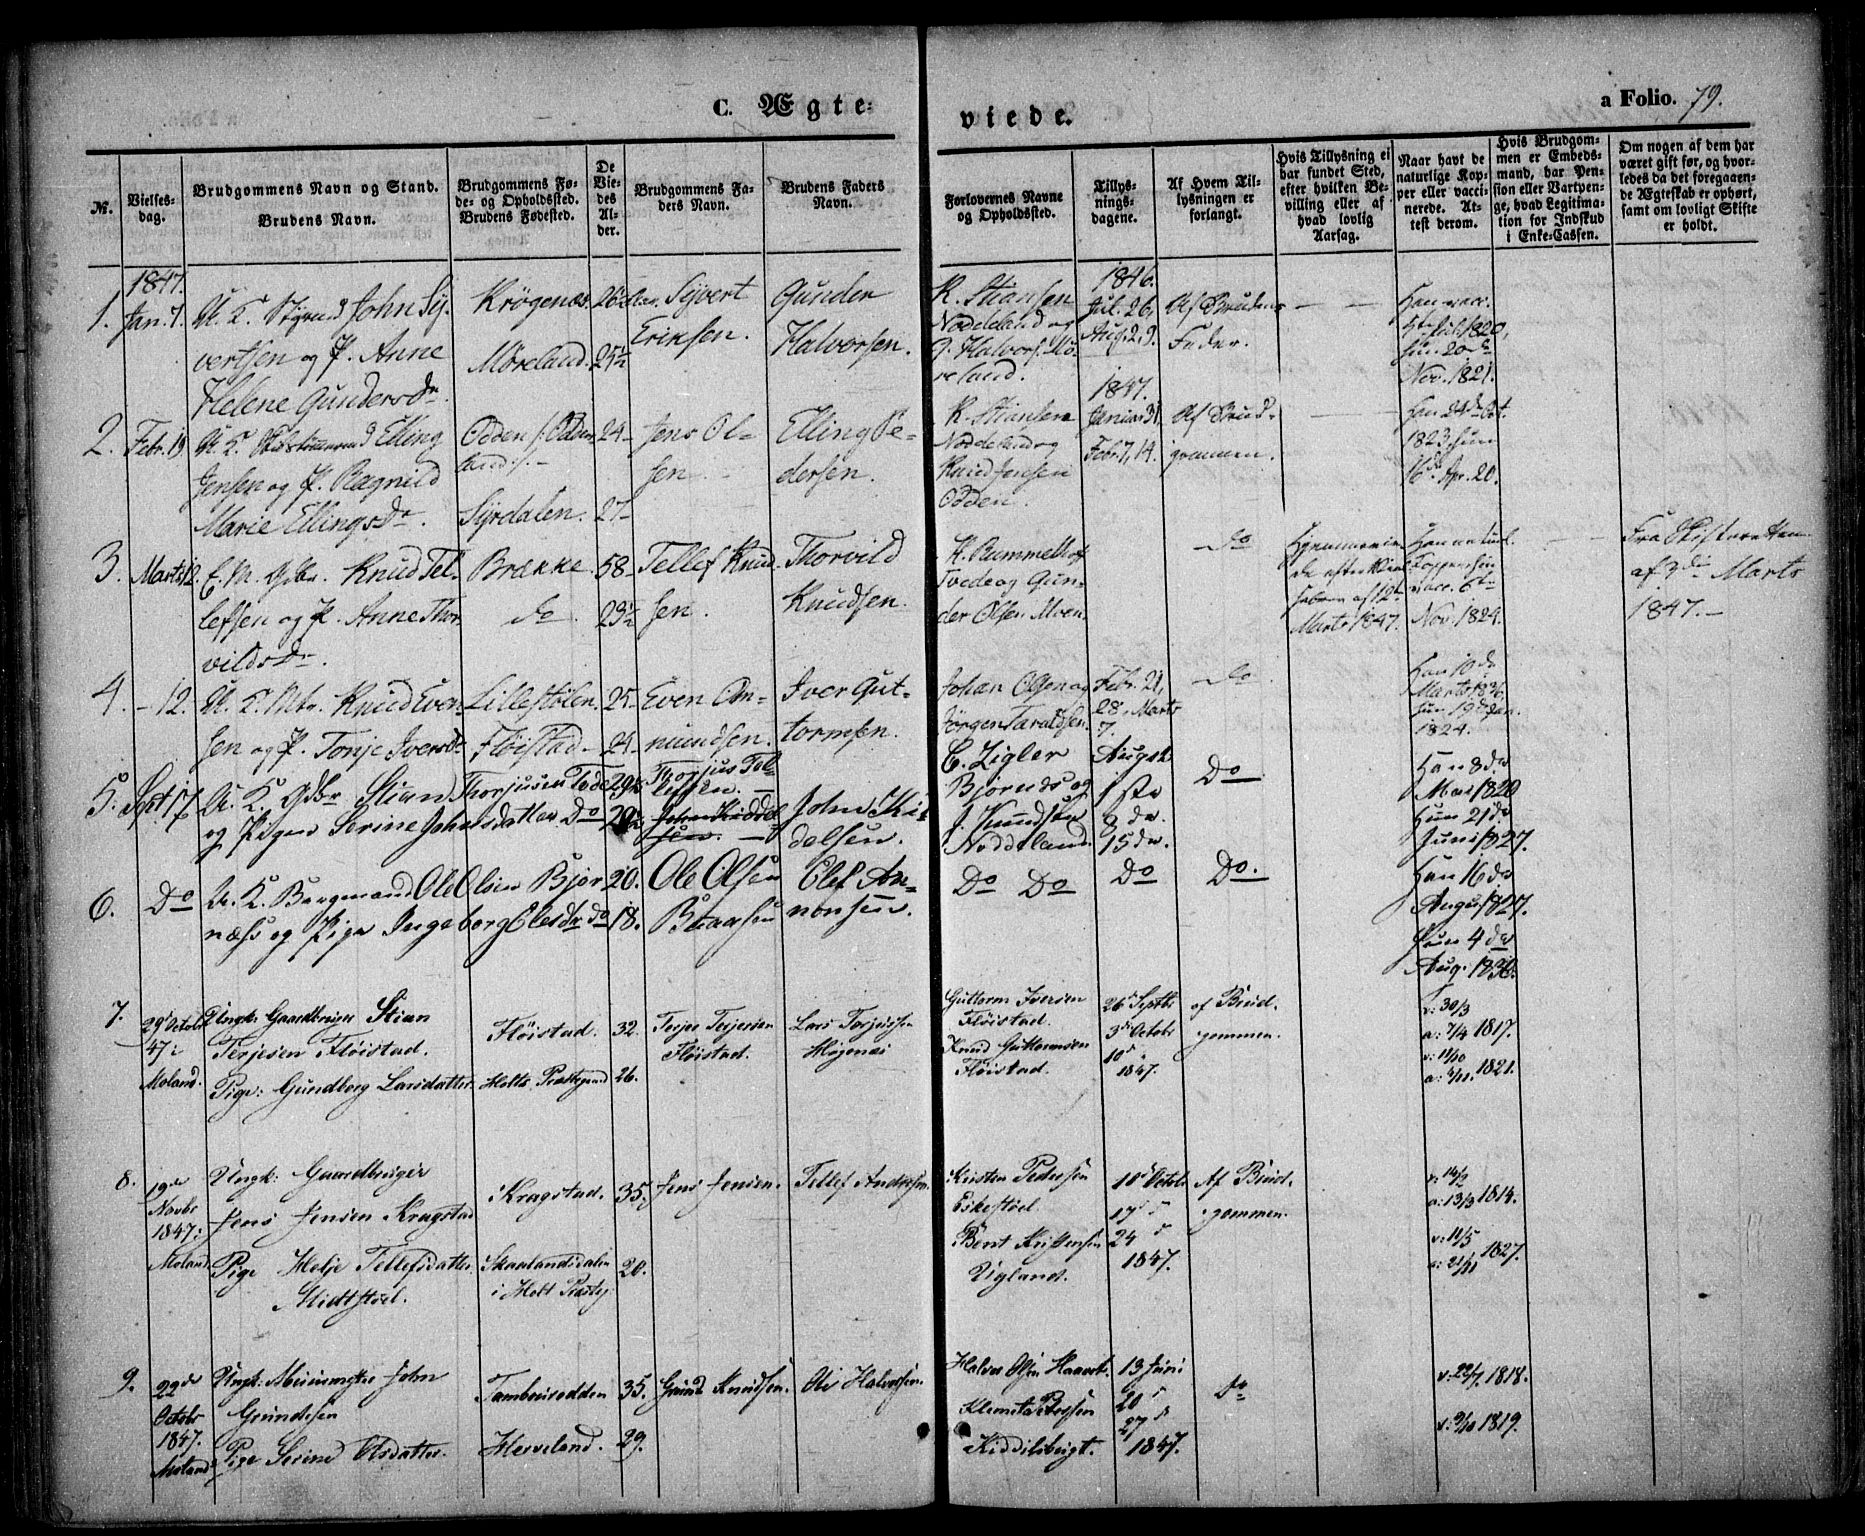 C. Ægte-
viede.
a Folio. 79.
№.
Vielses-
dag.
Brudgommens Navn og Stand.
Brudens Navn.
Brudgommens Fø-
de- og Opholdssted.
Brudens Fødested.
De
Vie-
des
Al-
der.
Brudgommens Fa-
ders Navn.
Brudens Faders
Navn.
Forlovernes Navne
og Opholdssted.
Tillys-
nings-
dagene.
Af Hvem Til-
lysningen er
forlangt.
Hvis Tillysning ei
har fundet Sted,
efter hvilken Be-
villing eller af
hvad lovlig
Aarsag.
Naar havt de
naturlige Kop-
per eller vacci-
nerede. At-
test derom.
Hvis Brudgom-
men er Embeds-
mand, har Pen-
sion eller Vartpen-
ge, hvad Legitima-
tion for Indskud
i Enke-Cassen.
Om nogen af dem har
været gift før, og hvor-
ledes da det foregaaen-
de Ægteskab er ophørt,
samt om lovligt Skifte
er holdt.
1847.
1.
Jan. 7.
U. K. Styrmd John Sy-
vertsen og P. Anne
Helene Gundersdr
Krögenæs.
Möreland.
26
25½
Syvert
Eriksen.
Gunder
Halvorsen.
K. Stiansen
Noddeland og
G. Halvors. Mö-
reland.
1846.
Jul. 26,
Aug. 2, 9.
Af Brudens
Fader.
Han vacc.
5te Jul. 1820,
hun 20de
Nov. 1821.
2.
Febr. 19
U. K. Elling
Jensen og P. Ragnild
Marie Ellingsdr.
Odden /: Odden-
land :/. -
Syrdalen.
24-
27-
Jens Ol-
sen.
Elling Pe-
dersen.
K. Stiansen
Noddeland og
Knud Jensen
Odden.
1847.
Januar 31
Febr. 7, 14.
Af Brud-
gommen.
Han 24de Oct.
1823, hun
16de Apr. 20.
3.
Marts 12.
E. M. Gdbr. Knud Tel-
lefsen og P. Anne Thor-
vildsdr.
Brække.
do.
58-
23½
Tellef Knud-
sen.
Thorvild
Knudsen.
H. Rummelhof
Tvede og Gun-
der Olsen Moen.
do
af 12te
Marts 1847.
Han naturl.
Kopper, hun
vacc. 6te
Nov. 1824.
Fra Skifteretten
af 3die Marts
1847. -
4.
- 12.
U. K. Mtr. Knud Even-
sen og P. Tonje Iversdr
Lillestölen.
Flöistad -
25-
24-
Even An-
mundsen.
Iver Gut-
tormsen.
Johan Olsen og
Jörgen Taraldsen.
Febr. 21,
28, Marts
7.
do.
Han 10de
Marts 1836,
hun 19de Jan.
1824.
5.
Sept 17
U. K. Gdbr Stian Thorjusen Tvede
og Pigen Serine Johnsdatter Do
29
20½
Thorjus Tel-
lefsen. -
John Kiddel-
sen.
John Kid-
delsen.
C. Zigler
Björnæs og
J. Knudsen
Noddeland
August
1ste
8de.
15de.
Do
Han 8de
Mai 1820
Hun 21de
Juni 1827.
6.
Do
U. K. Bergmand Ole Olsen Bjor-
næss og Pige Ingeborg Olesdr do
20.
18.
Ole Olsen
Olef An-
nonsen.
Do Do
Do
Do.
Han 16de
August 1827.
Hun 4de
Aug. 1830.
7.
29d Octobr
47:
Moland.
Ungk: Gaardbruger Stian
Terjesen Flöistad.
Pige: Gundborg Larsdatter.
Flöistad.
Holts Præstegjeld
32.
26.
Terjes Terjesen
Flöistad.
Lars Torjussen
Guttorm Iversen
Flöistad.
Knud Guttormsen
Flöistad.
26d Septbr
3d Octobr
10d "
1847.
af Brud-
gommen.
v: 30/3
a: 7/4 1817.
v: 11/10
a: 4/11. 1821.
8.
19de
Novbr
1847:
Moland
Ungk: Gaardbruger
Jens Jensen Kragstad
Pige Helje Tellefsdatter
Midtstöel.
Kragstad.
Skaalandsdalen
i Holt Præstgj.
35.
20.
Jens Jensen.
Tellef Andersen.
Kristen Pedersen
Eikestöel.
Bent Kristensen
Uigland.
10d Octobr
17d "
24 d
1847.
Af Brud-
gommen.
v: 14/2
a: 13/3 1814.
v: 11/5
a: 21/11 1827.
9.
22de
Octobr
1847.
Moland
Ungk: John
Grundesen
Pige Serine Olsdatter.
Tambursodden
Herveland.
35.
29.
Grund Knudsen.
Ole Halvorsen.
Halvor Olsen
Klemet Pedersen
13 Juni
20 d
27 d
1847.
do
v: 22/7 1818.
v: 9/10 1819.